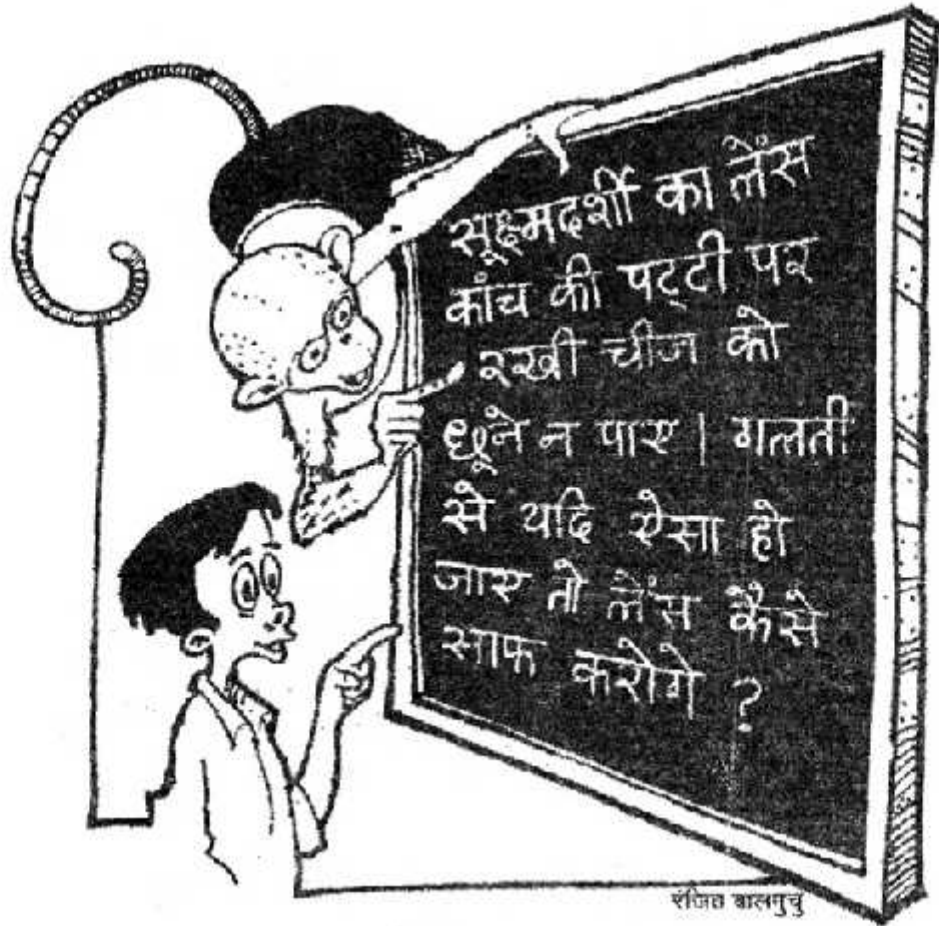 सूक्ष्मदर्शी का लेंस
कांच की पट्टी पर
रखी चीज को
छूने न पाए । गलती
से यदि ऐसा हो
जाए तो लेंस कैसे
साफ करोगे ?
रंजित बालमुचु